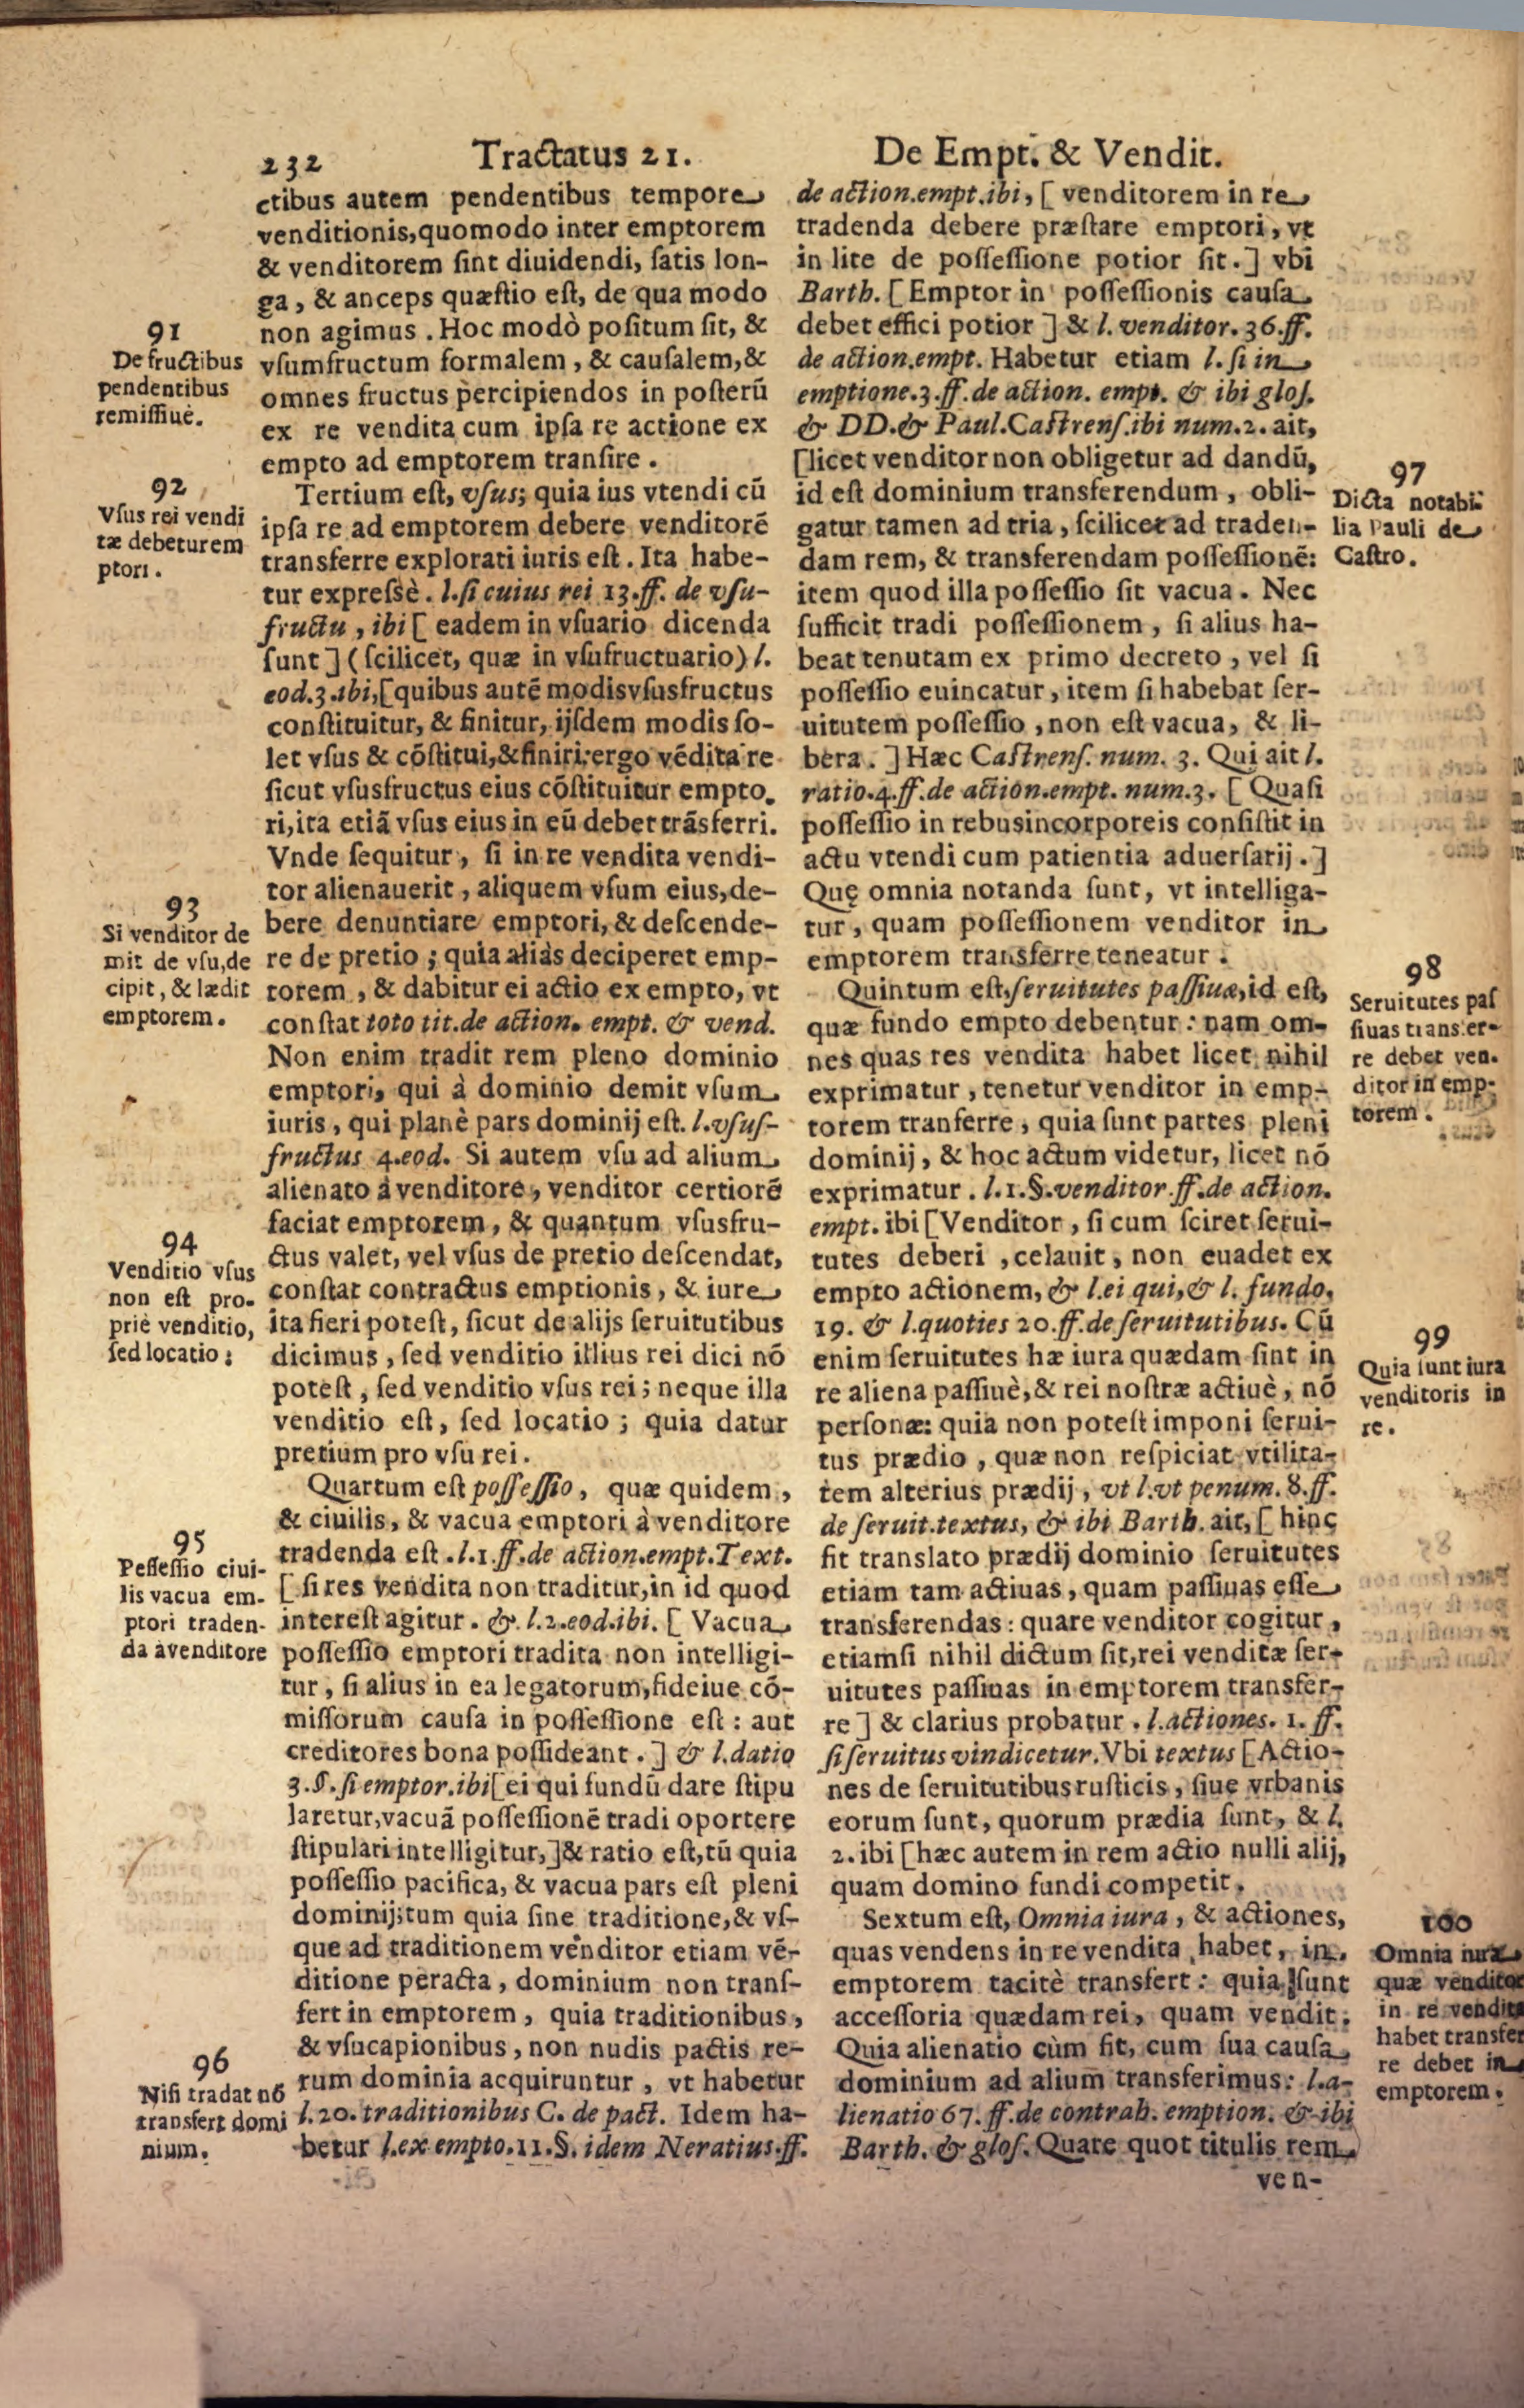 232 Tractatus 21. De Empt. & Vendit.
ctibus autem pendentibus tempore
venditionis,quomodo inter emptorem
& venditorem ſint diuidendi, ſatis lon-
ga, & anceps quæſtio eſt, de qua modo
non agimus. Hoc modò poſitum ſit, &
vſumfructum formalem, & cauſalem,&
omnes fructus percipiendos in poſterũ
ex re vendita cum ipſa re actione ex
empto ad emptorem tranſire.
Tertium eſt, vſus; quia ius vtendi cũ
ipſa re ad emptorem debere venditorẽ
transferre explorati iuris eſt. Ita habe-
tur expreſsè. l.ſi cuius rei 13.ff. de vſu-
fructu, ibi [ eadem in vſuario dicenda
ſunt ] (ſcilicet, quæ in vſufructuario) l.
eod.3.ibi,[quibus autẽ modisvſusfructus
conſtituitur, & finitur, ijſdem modis ſo-
let vſus & cõſtitui,&finiri:ergo vẽdita re
ſicut vſusfructus eius cõſtituitur empto.
ri,ita etiã vſus eius in eũ debet trãsferri.
Vnde ſequitur, ſi in re vendita vendi-
tor alienauerit, aliquem vſum eius,de-
bere denuntiare emptori,& deſcende-
re de pretio; quia aliàs deciperet emp-
torem, & dabitur ei actio ex empto, vt
conſtat toto tit.de action. empt. & vend.
Non enim tradit rem pleno dominio
emptori, qui à dominio demit vſum
iuris, qui planè pars dominij eſt. l.vſuſ-
fructus 4.eod. Si autem vſu ad alium
alienato à venditore, venditor certiorẽ
faciat emptorem, & quantum vſusfru-
ctus valet, vel vſus de pretio deſcendat,
conſtat contractus emptionis, & iure
ita fieri poteſt, ſicut de alijs ſeruitutibus
dicimus, ſed venditio illius rei dici nõ
poteſt, ſed venditio vſus rei; neque illa
venditio eſt, ſed locatio; quia datur
pretium pro vſu rei.
Quartum eſt poſſeſſio, quæ quidem,
& ciuilis, & vacua emptori à venditore
tradenda eſt. l.1.ff.de action.empt.Text.
[ ſi res vendita non traditur,in id quod
intereſt agitur. & l.2.eod.ibi. [ Vacua
poſſeſſio emptori tradita non intelligi-
tur, ſi alius in ea legatorum,fideiue cõ-
miſſorum cauſa in poſſeſſione eſt: aut
creditores bona poſſideant. ] & l.datio
3.§.ſi emptor.ibi[ei qui fundũ dare ſtipu
laretur,vacuã poſſeſſionẽ tradi oportere
ſtipulari intelligitur,]& ratio eſt,tũ quia
poſſeſſio pacifica, & vacua pars eſt pleni
dominij;tum quia ſine traditione,& vſ-
que ad traditionem venditor etiam vẽ-
ditione peracta, dominium non tranſ-
fert in emptorem, quia traditionibus,
& vſucapionibus, non nudis pactis re-
rum dominia acquiruntur, vt habetur
l.20. traditionibus C. de pact. Idem ha-
betur l.ex empto.11.§. idem Neratius.ff.
91
De fructibus
pendentibus
remiſſiuè.
92
Vſus rei vendi
tæ debetur em
ptori.
93
Si venditor de
mit de vſu,de
cipit, & lædit
emptorem.
94
Venditio vſus
non eſt pro-
priè venditio,
ſed locatio:
95
Peſſeſſio ciui-
lis vacua em-
ptori traden-
da àvenditore
96
Niſi tradat nõ
transfert domi
nium.
de action.empt.ibi, [ venditorem in re
tradenda debere præſtare emptori, vt
in lite de poſſeſſione potior ſit. ] vbi
Barth. [ Emptor in poſſeſſionis cauſa
debet effici potior ] & l. venditor. 36.ff.
de action.empt. Habetur etiam l. ſi in
emptione.3.ff.de action. empt. & ibi gloſ.
& DD.& Paul.Caſtrenſ.ibi num.2. ait,
[licet venditor non obligetur ad dandũ,
id eſt dominium transferendum, obli-
gatur tamen ad tria, ſcilicet ad traden-
dam rem, & transferendam poſſeſſionẽ:
item quod illa poſſeſſio ſit vacua. Nec
ſufficit tradi poſſeſſionem, ſi alius ha-
beat tenutam ex primo decreto, vel ſi
poſſeſſio euincatur, item ſi habebat ſer-
uitutem poſſeſſio, non eſt vacua, & li-
bera. ] Hæc Caſtrenſ. num. 3. Qui ait l.
ratio.4.ff.de action.empt. num.3. [ Quaſi
poſſeſſio in rebusincorporeis conſiſtit in
actu vtendi cum patientia aduerſarij. ]
Quę omnia notanda ſunt, vt intelliga-
tur, quam poſſeſſionem venditor in
emptorem transferre teneatur.
Quintum eſt,ſeruitutes paſſiuæ,id eſt,
quæ fundo empto debentur: nam om-
nes quas res vendita habet licet nihil
exprimatur, tenetur venditor in emp-
torem tranferre, quia ſunt partes pleni
dominij, & hoc actum videtur, licet nõ
exprimatur. l.1.§.venditor.ff.de action.
empt. ibi [Venditor, ſi cum ſciret ſerui-
tutes deberi, celauit, non euadet ex
empto actionem, & l.ei qui,& l. fundo.
19. & l.quoties 20.ff.de ſeruitutibus. Cũ
enim ſeruitutes hæ iura quædam ſint in
re aliena paſſiuè,& rei noſtræ actiuè, nõ
perſonæ: quia non poteſt imponi ſerui-
tus prædio, quæ non reſpiciat vtilita-
tem alterius prædij, vt l.vt penum. 8.ff.
de ſeruit.textus, & ibi Barth. ait, [ hinc
fit translato prædij dominio ſeruitutes
etiam tam actiuas, quam paſſiuas eſſe
transferendas: quare venditor cogitur,
etiamſi nihil dictum ſit,rei venditæ ſer-
uitutes paſſiuas in emptorem transfer-
re ] & clarius probatur. l.actiones. 1. ff.
ſi ſeruitus vindicetur. Vbi textus [ Actio-
nes de ſeruitutibus ruſticis, ſiue vrbanis
eorum ſunt, quorum prædia ſunt, & l.
2. ibi [hæc autem in rem actio nulli alij,
quam domino fundi competit.
Sextum eſt, Omnia iura, & actiones,
quas vendens in re vendita habet, in
emptorem tacitè transfert: quia ſunt
acceſſoria quædam rei, quam vendit.
Quia alienatio cùm fit, cum ſua cauſa
dominium ad alium transferimus: l.a-
lienatio 67. ff.de contrah. emption. & ibi
Barth. & gloſ. Quare quot titulis rem
ven-
97
Dicta notabi-
lia Pauli de
Caſtro.
98
Seruitutes paſ
ſiuas transfer-
re debet ven-
ditor in emp-
torem.
99
Quia ſunt iura
venditoris in
re.
100
Omnia iura
quæ venditor
in re vendita
habet transfer
re debet in
emptorem.